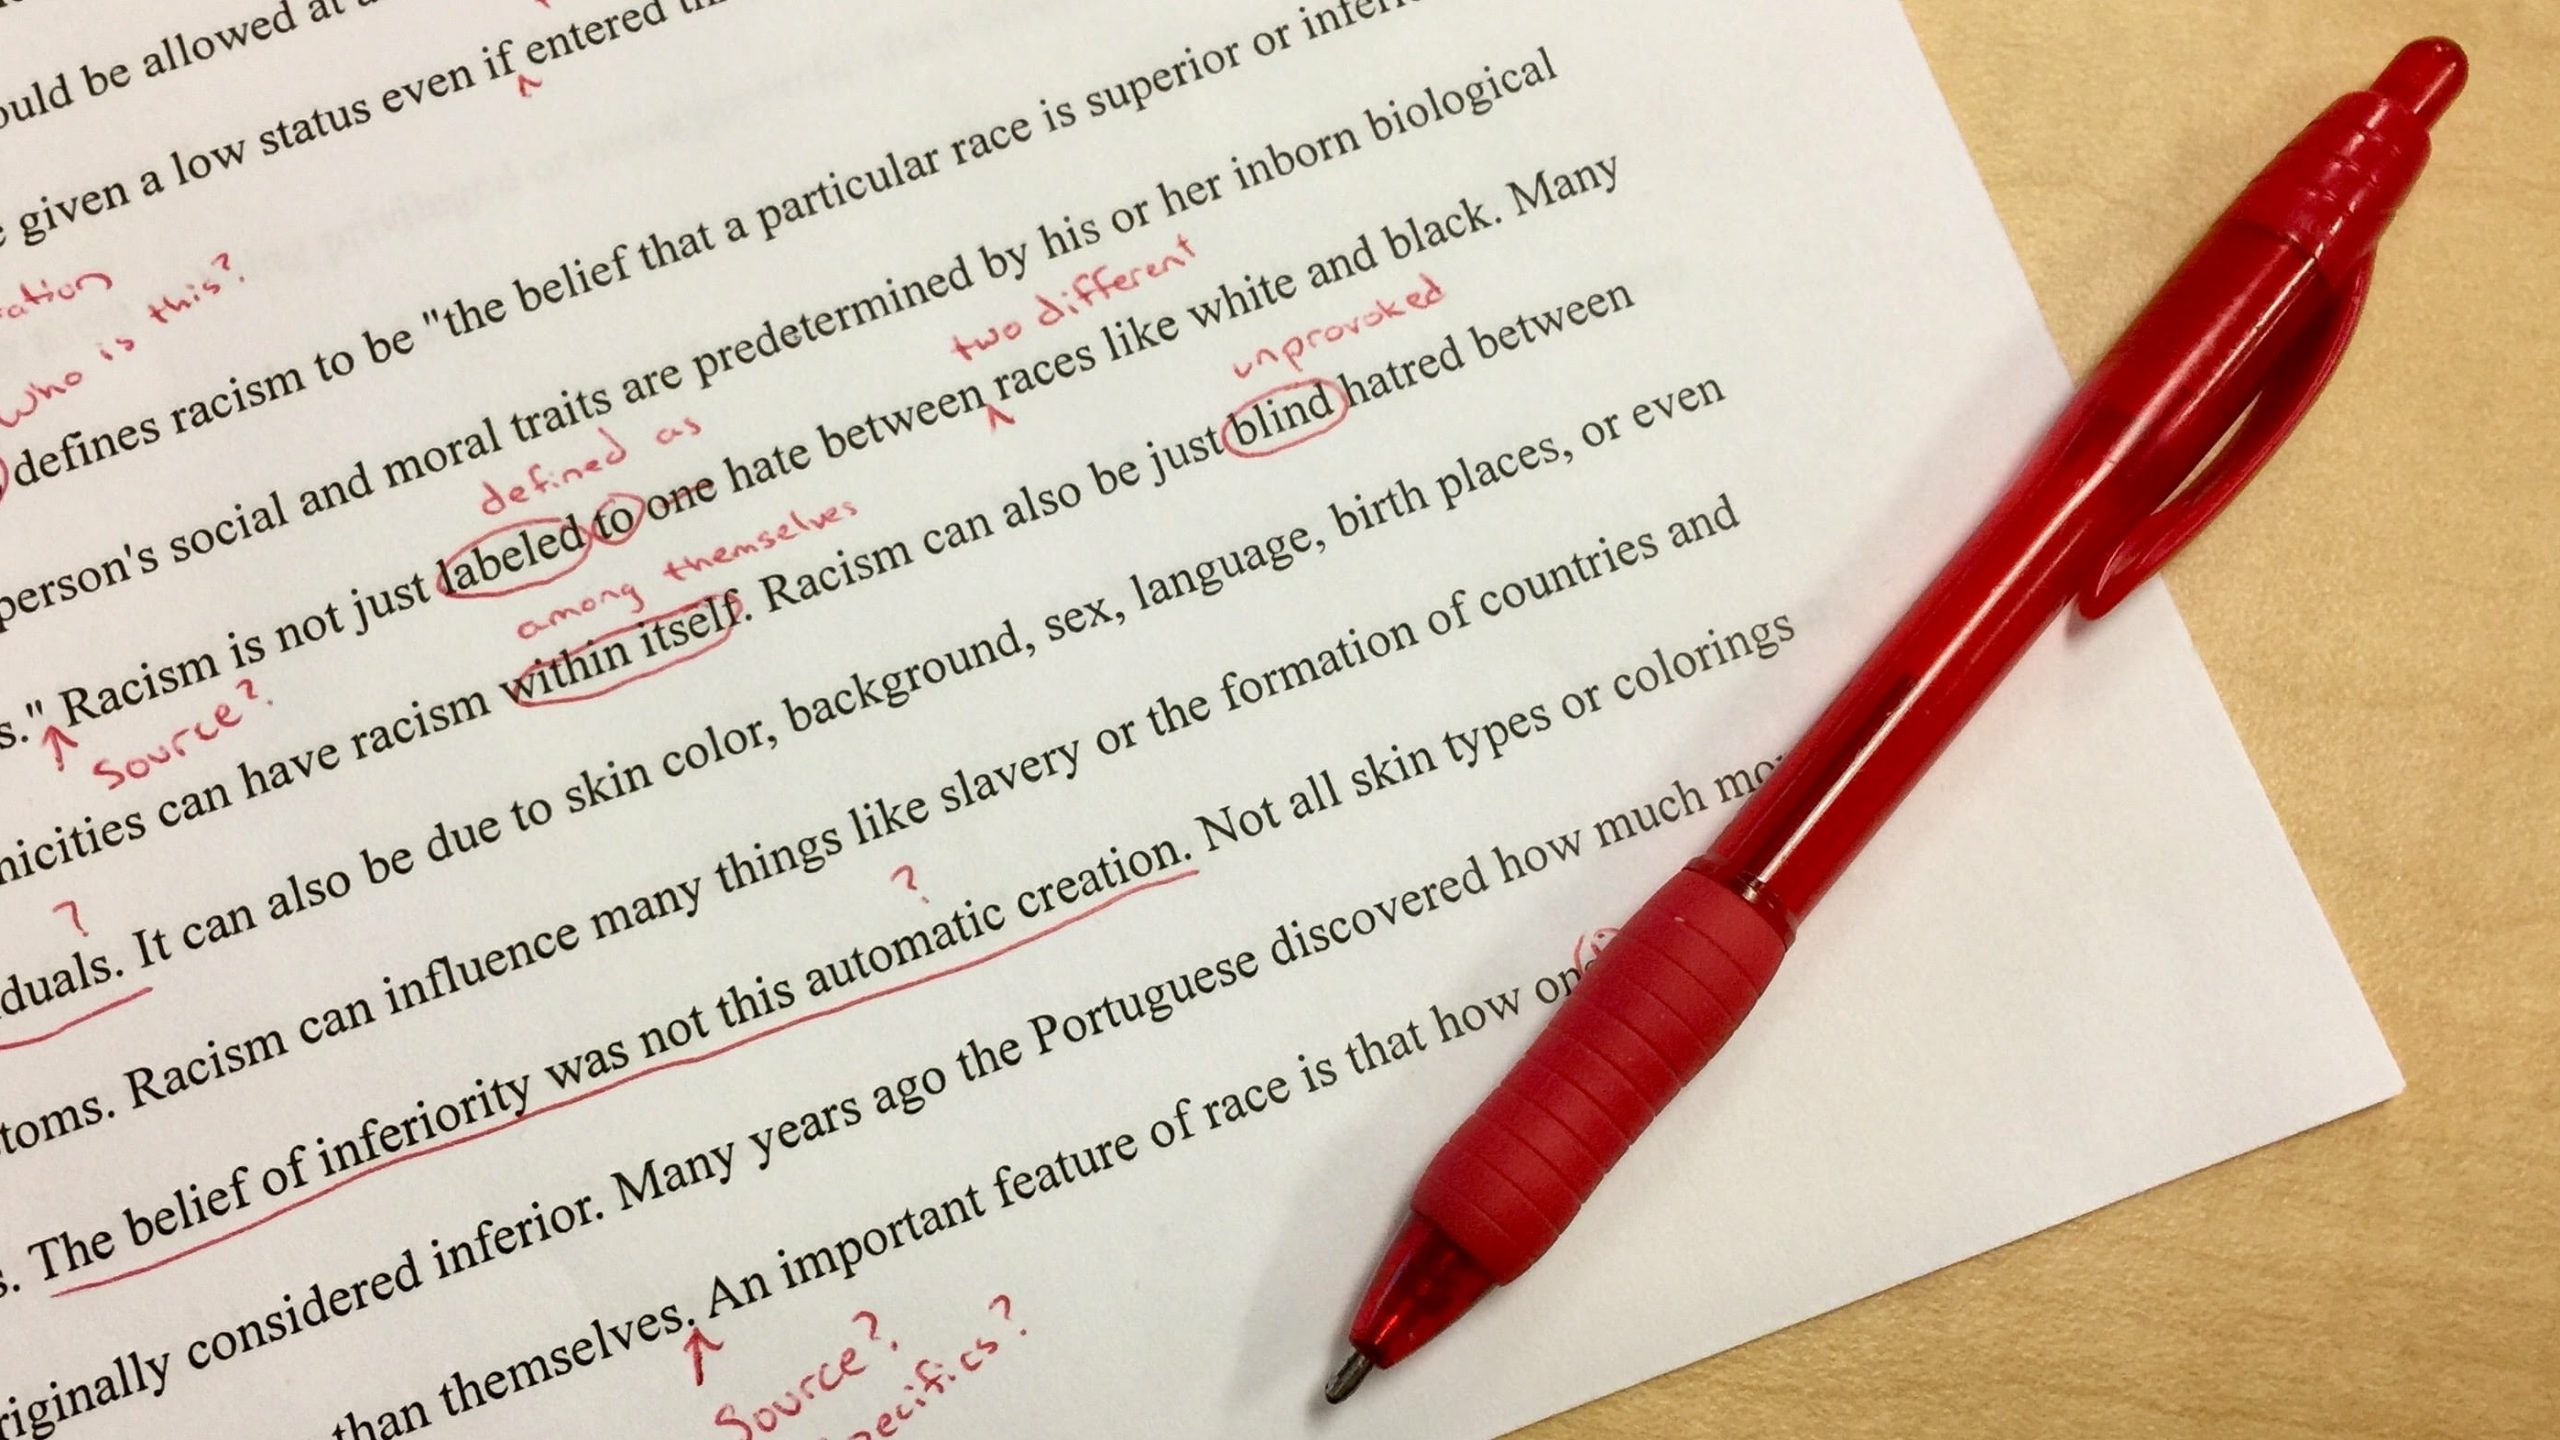 ould be allowed at
given a low status even if entered
^
ration
who is this?
defines racism to be "the belief that a particular race is superior or
person's social and moral traits are predetermined by his or her inborn biological
defined as
two different
s." Racism is not just labeled to one hate between races like white and black. Many
^
Source?
among themselves
unprovoked
nicities can have racism within itself. Racism can also be just blind hatred between
?
duals. It can also be due to skin color, background, sex, language, birth places, or even
toms. Racism can influence many things like slavery or the formation of countries and
?
s. The belief of inferiority was not this automatic creation. Not all skin types or colorings
riginally considered inferior. Many years ago the Portuguese discovered how much
than themselves. An important feature of race is that how
Source?
pecifics?